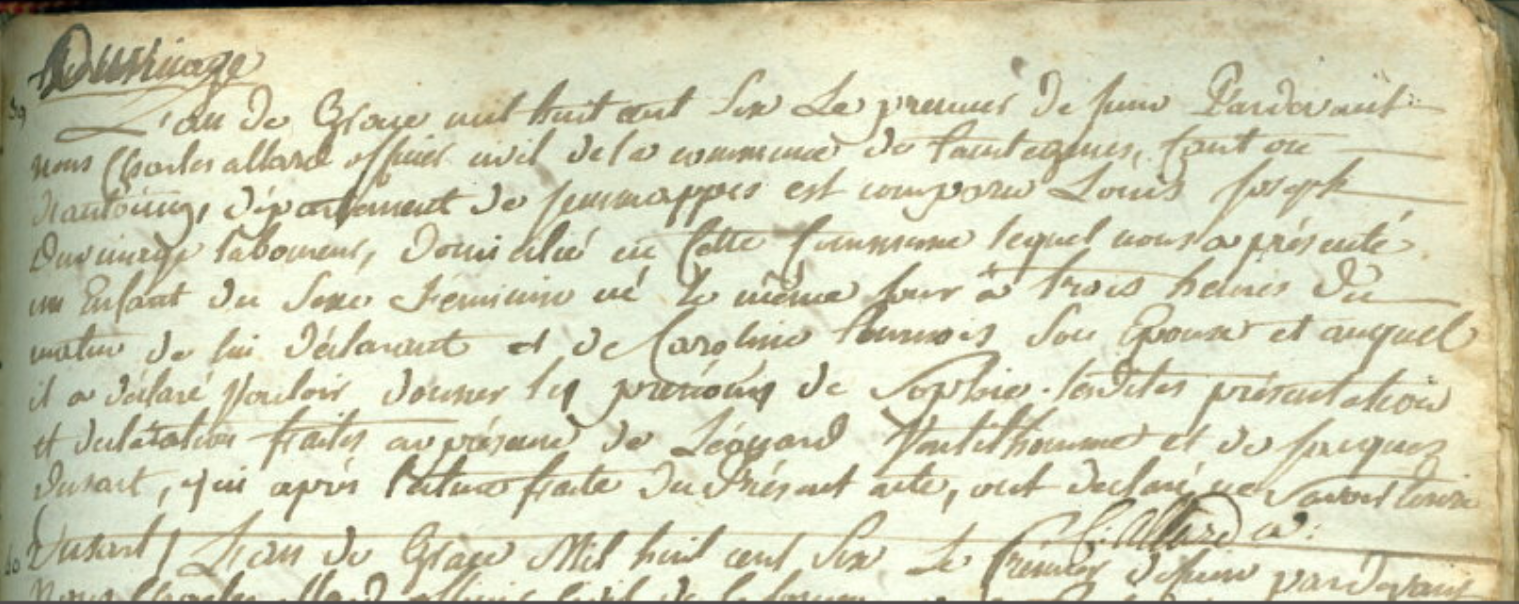 Dumirage
39
L'an de Grace mil huit cent Six Le premier de juin Pardevant
nous Charles allard officier civil de la commune de taintegnies, Canton
d'antoing, département de jemmappes est comparu Louis joseph
Dumirage laboureur, domicilié en Cette Commune lequel nous a présenté
un Enfant du Sexe Féminin né le même jour à trois heures du
matin de lui déclarant et de Caroline Son Epouse et auquel
il a déclaré Vouloir donner les prenoms de Sophie. lesdites présentation
et declaration faites en présence de Léonard et de jacques
dusart, qui après lecture faite du Présent acte, ont declaré ne Savoir Ecrire
C. Allard
40 Dusart / L'an de Grace Mil huit cent Six Le Premier de juin pardevant
Nous Charles allard officier Civil de la Commune